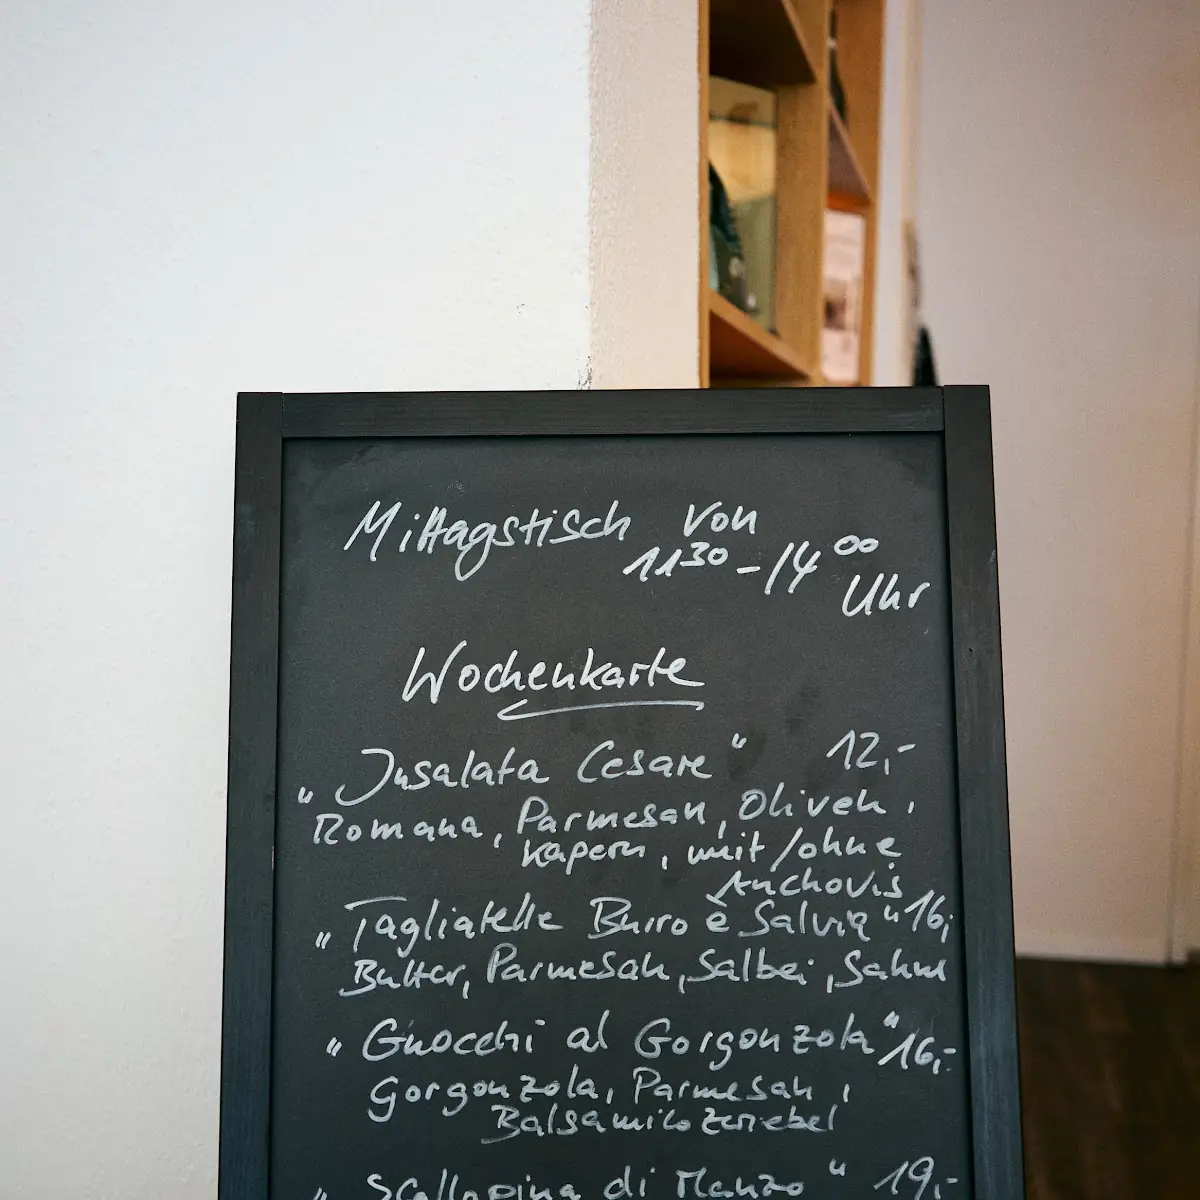 Mittagstisch von
11³⁰ - 14⁰⁰
Uhr
Wochenkarte
„Insalata Cesare“ 12,-
Romana, Parmesan, Oliven,
Kapern, mit/ohne
Anchovis
„Tagliatelle Burro è Salvia“ 16,
Butter, Parmesan, Salbei, Sahne
„Gnocchi al Gorgonzola“ 16,-
Gorgonzola, Parmesan,
Balsamicozwiebel
„Scaloppina di Manzo“ 19,-